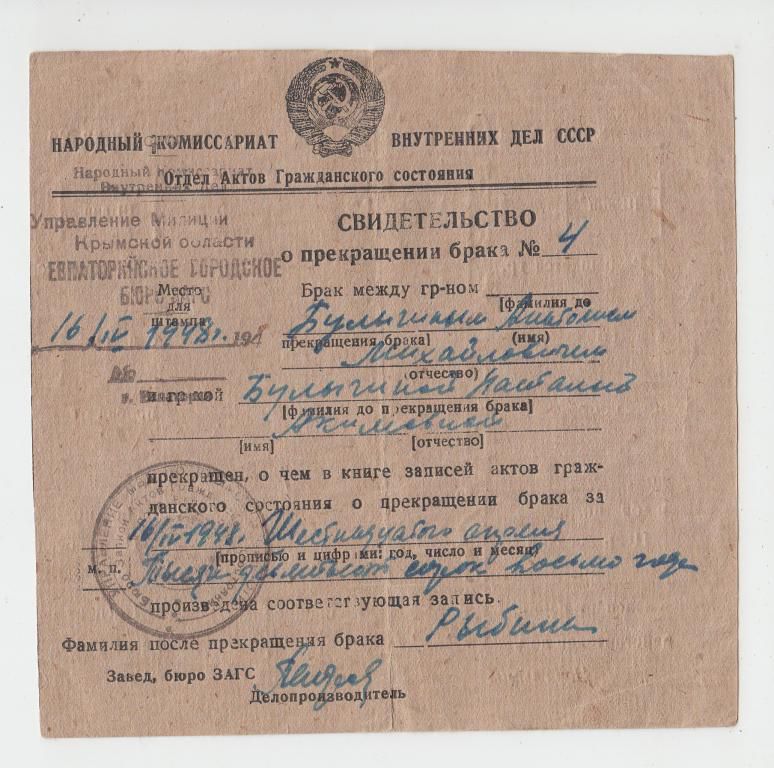 НАРОДНЫЙ КОМИССАРИАТ ВНУТРЕННИХ ДЕЛ СССР
Отдел Актов Гражданского состояния
Народный Комиссариат
Внутренних Дел
Управление Милиции
Крымской области
ЕВПАТОРИЙСКОЕ ГОРОДСКОЕ
БЮРО ЗАГС
Место
для
штампа
16/IV 1948г. 194
№
СВИДЕТЕЛЬСТВО
о прекращении брака № 4
Брак между гр-ном
[фамилия до
Булыгиным Анатолием
прекращения брака] (имя)
Михайловичем
(отчество)
и гр-кой Булыгиной Наталией
[фамилия до прекращения брака]
Акимовной
[имя] [отчество]
прекращен, о чем в книге записей актов граж-
данского состояния о прекращении брака за
16/IV 1948г. Шестнадцатого апреля
[прописью и цифрами: год, число и месяц)
м. п. девятьсот сорок восьмо года
произведена соответствующая запись.
Фамилия после прекращения брака Рыбина
Завед, бюро ЗАГС
Делопроизводитель